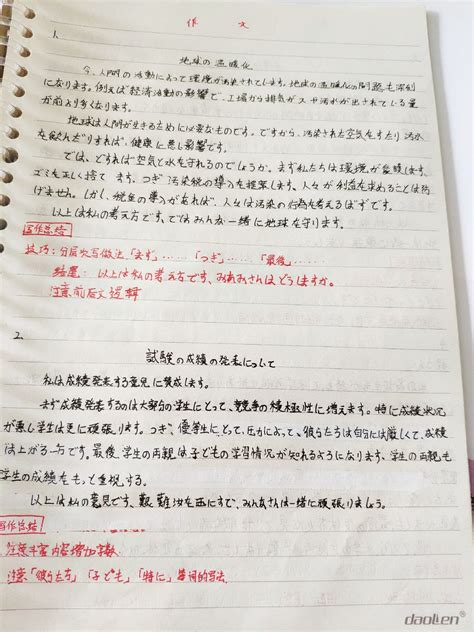 作 文
1.
地球の温暖化
今、人間の活動によって環境が汚染されています。地球の温暖化の問題も深刻
になります。例えば経済活動の影響で、工場から排気ガスや汚水が出されている量
が前より多くなります。
地球は人間が生きるために必要なものです。ですから、汚染された空気をすたり汚水
を飲んだりすれば、健康に悪い影響です。
では、どすれば空気と水を守れるのでしょうか。まず私たちは環境が意識します、
ゴミを正しく捨て ます。つぎ汚染税の導入を提案します。人々が利益を求めることは防
げません。しかし、税金の導入があれば、人々は汚染の行為を考えるはずです。
以上は私の考え方です、ではみんな一緒に地球を守ります。
写作总结
技巧：分层次写做法、「まず」……「つぎ」……「最後」……
结尾： 以上は私の考え方です、みあなさんはどうしますか。
注意前后文逻辑
2.
試験の成績の発表について
私は成績発表する意見に賛成します。
まず成績発表するのは大部分の学生にとって、競争の積極性に増えます。特に成績状況
が悪い学生は更に頑張ります。つぎ、優等生にとって、圧力によって、彼らたちは自分には厳しくて、成績
は上がる一方です。最後、学生の両親は子どもの学習情況が知れるようになります。学生の両親も
学生の成績をもっと重視する。
以上は私の意見です、艱難汝を玉にすで、みんなさんは一緒に頑張りましょう。
写作总结
注意丰富内容增加字数
注意「彼らたち」「子ども」「特に」等词的写法
daolien®